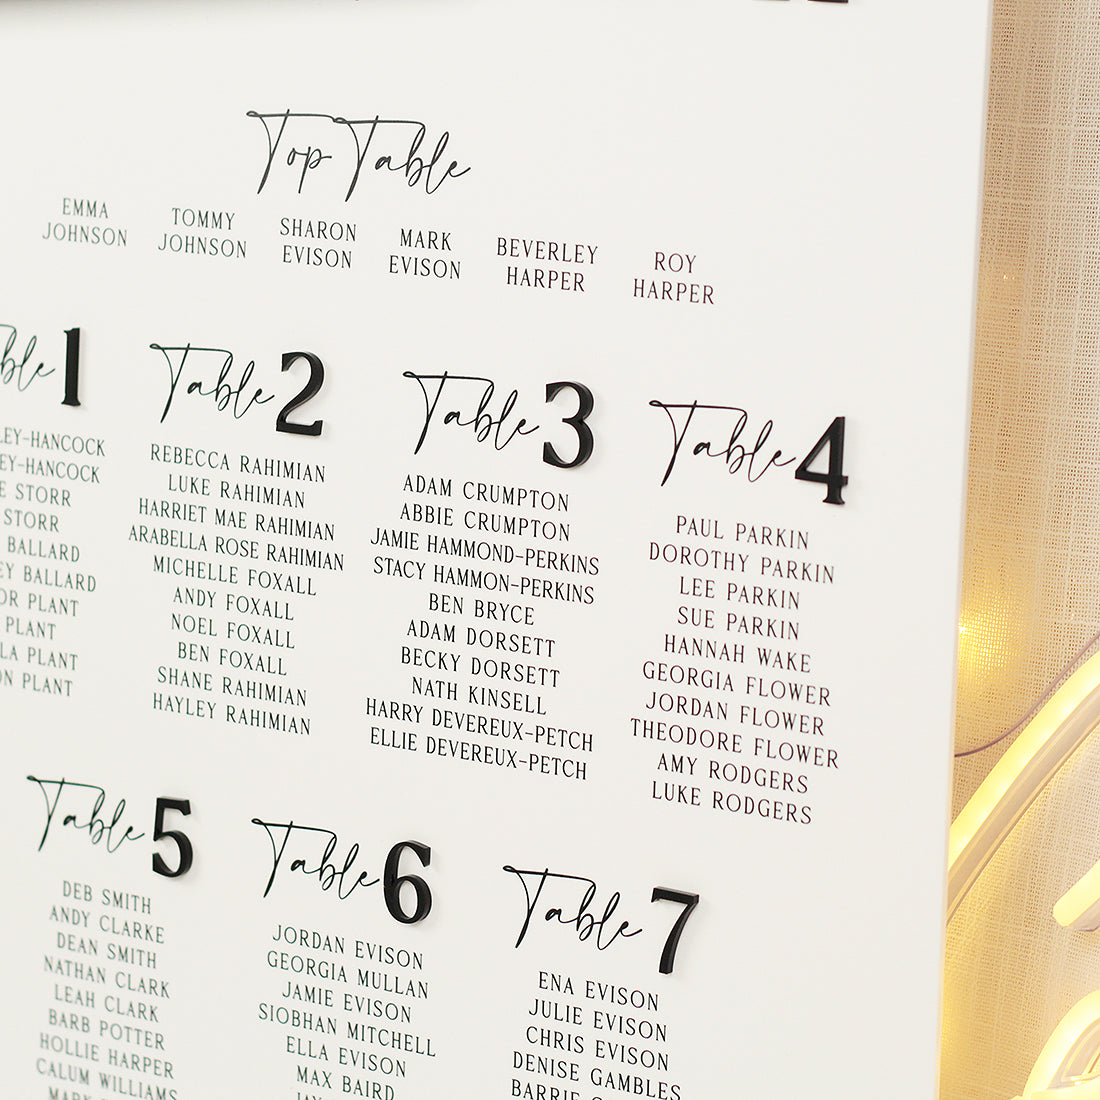 Top Table
EMMA JOHNSON
TOMMY JOHNSON
SHARON EVISON
MARK EVISON
BEVERLEY HARPER
ROY HARPER
1
LEY-HANCOCK
EY-HANCOCK
STORR
STORR
BALLARD
BALLARD
PLANT
PLANT
PLANT
PLANT
Table 2
REBECCA RAHIMIAN
LUKE RAHIMIAN
HARRIET MAE RAHIMIAN
ARABELLA ROSE RAHIMIAN
MICHELLE FOXALL
ANDY FOXALL
NOEL FOXALL
BEN FOXALL
SHANE RAHIMIAN
HAYLEY RAHIMIAN
Table 3
ADAM CRUMPTON
ABBIE CRUMPTON
JAMIE HAMMOND-PERKINS
STACY HAMMON-PERKINS
BEN BRYCE
ADAM DORSETT
BECKY DORSETT
NATH KINSELL
HARRY DEVEREUX-PETCH
ELLIE DEVEREUX-PETCH
Table 4
PAUL PARKIN
DOROTHY PARKIN
LEE PARKIN
SUE PARKIN
HANNAH WAKE
GEORGIA FLOWER
JORDAN FLOWER
THEODORE FLOWER
AMY RODGERS
LUKE RODGERS
Table 5
DEB SMITH
ANDY CLARKE
DEAN SMITH
NATHAN CLARK
LEAH CLARK
BARB POTTER
HOLLIE HARPER
CALUM WILLIAMS
Table 6
JORDAN EVISON
GEORGIA MULLAN
JAMIE EVISON
SIOBHAN MITCHELL
ELLA EVISON
MAX BAIRD
Table 7
ENA EVISON
JULIE EVISON
CHRIS EVISON
DENISE GAMBLES
BARRIE